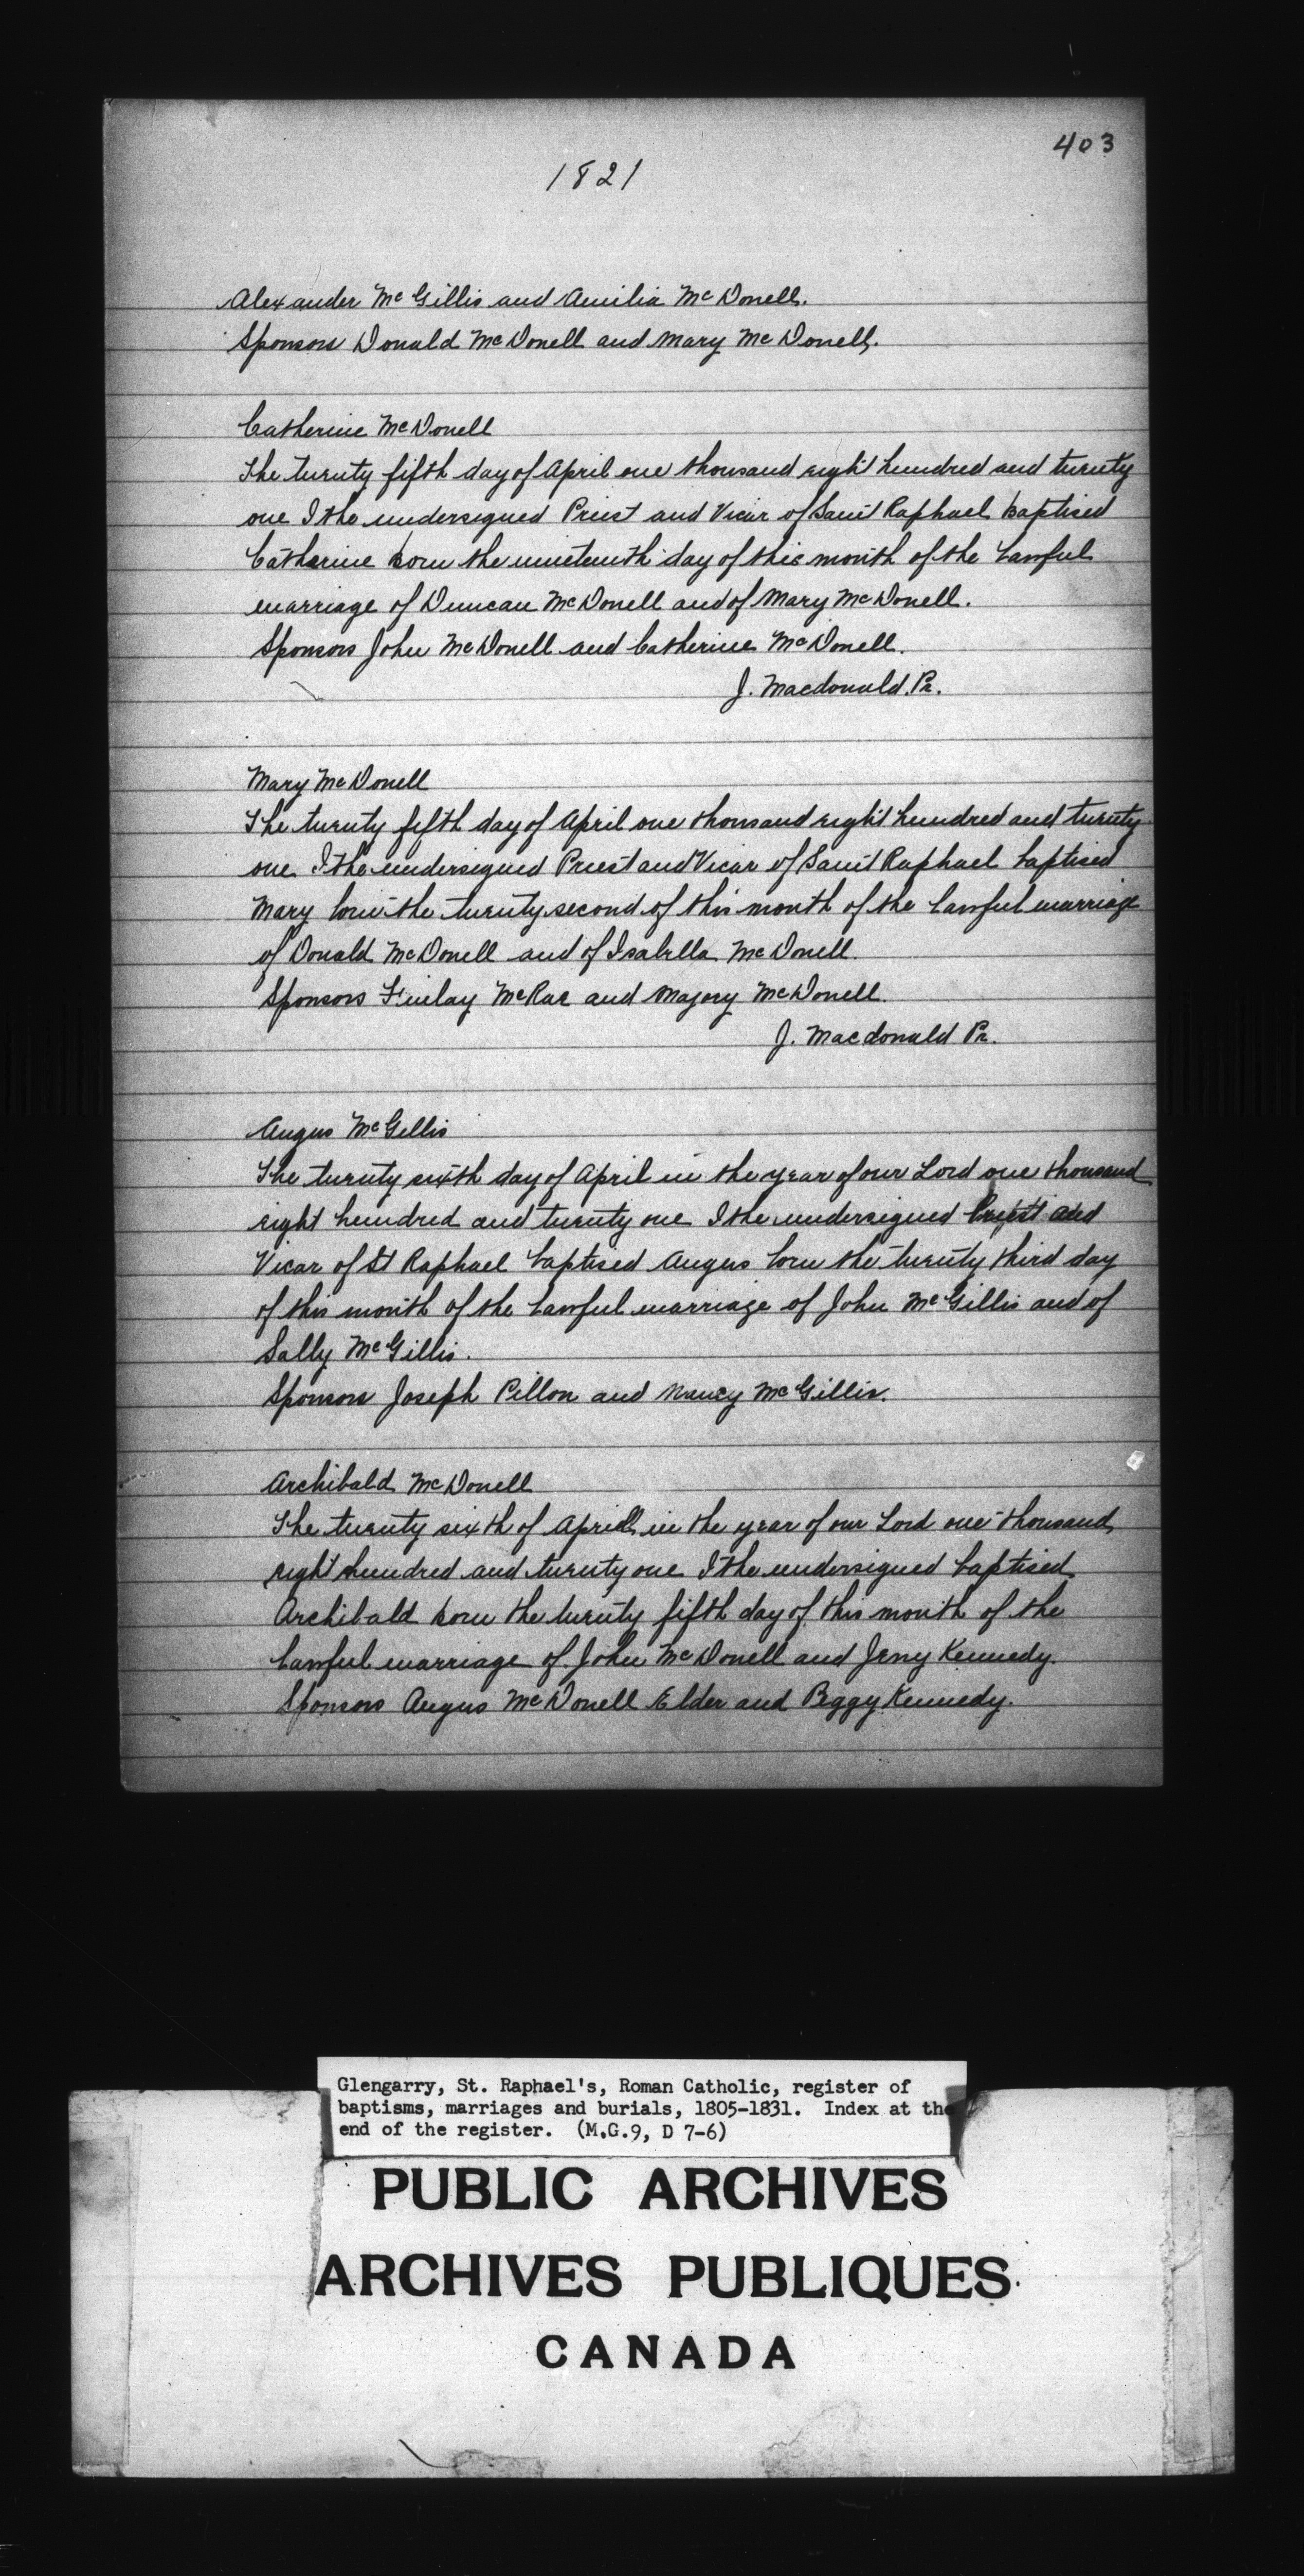 403
1821
Alexander McGillis and Amilia McDonell.
Sponsors Donald McDonell and Mary McDonell.
Catherine McDonell
The twenty fifth day of April one thousand eight hundred and twenty
one I the undersigned Priest and Vicar of Saint Raphael baptised
Catherine born the nineteenth day of this month of the lawful
marriage of Duncan McDonell and of Mary McDonell.
Sponsors John McDonell and Catherine McDonell.
J. Macdonald. Pr.
Mary McDonell
The twenty fifth day of April one thousand eight hundred and twenty
one I the undersigned Priest and Vicar of Saint Raphael baptised
Mary born the twenty second of this month of the lawful marriage
of Donald McDonell and of Isabella McDonell.
Sponsors Finlay McRae and Majory McDonell.
J. Macdonald Pr.
Angus McGillis
The twenty sixth day of April in the year of our Lord one thousand
eight hundred and twenty one I the undersigned Priest and
Vicar of St Raphael baptised Angus born the twenty third day
of this month of the lawful marriage of John McGillis and of
Sally McGillis.
Sponsors Joseph Pillon and Nancy McGillis.
Archibald McDonell
The twenty sixth of April in the year of our Lord one thousand
eight hundred and twenty one I the undersigned baptised
Archibald born the twenty fifth day of this month of the
lawful marriage of John McDonell and Jeny Kennedy.
Sponsors Angus McDonell Elder and Peggy Kennedy.
Glengarry, St. Raphael's, Roman Catholic, register of
baptisms, marriages and burials, 1805-1831. Index at the
end of the register. (M.G.9, D 7-6)
PUBLIC ARCHIVES
ARCHIVES PUBLIQUES
CANADA